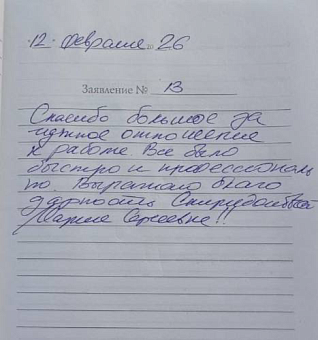 12. февраля 26
Заявление № 13
Спасибо большое за
нужное отношение
к работе. Все было
быстро и профессиональ
но. Выражаю благо
дарность
Марине Сергеевне!!